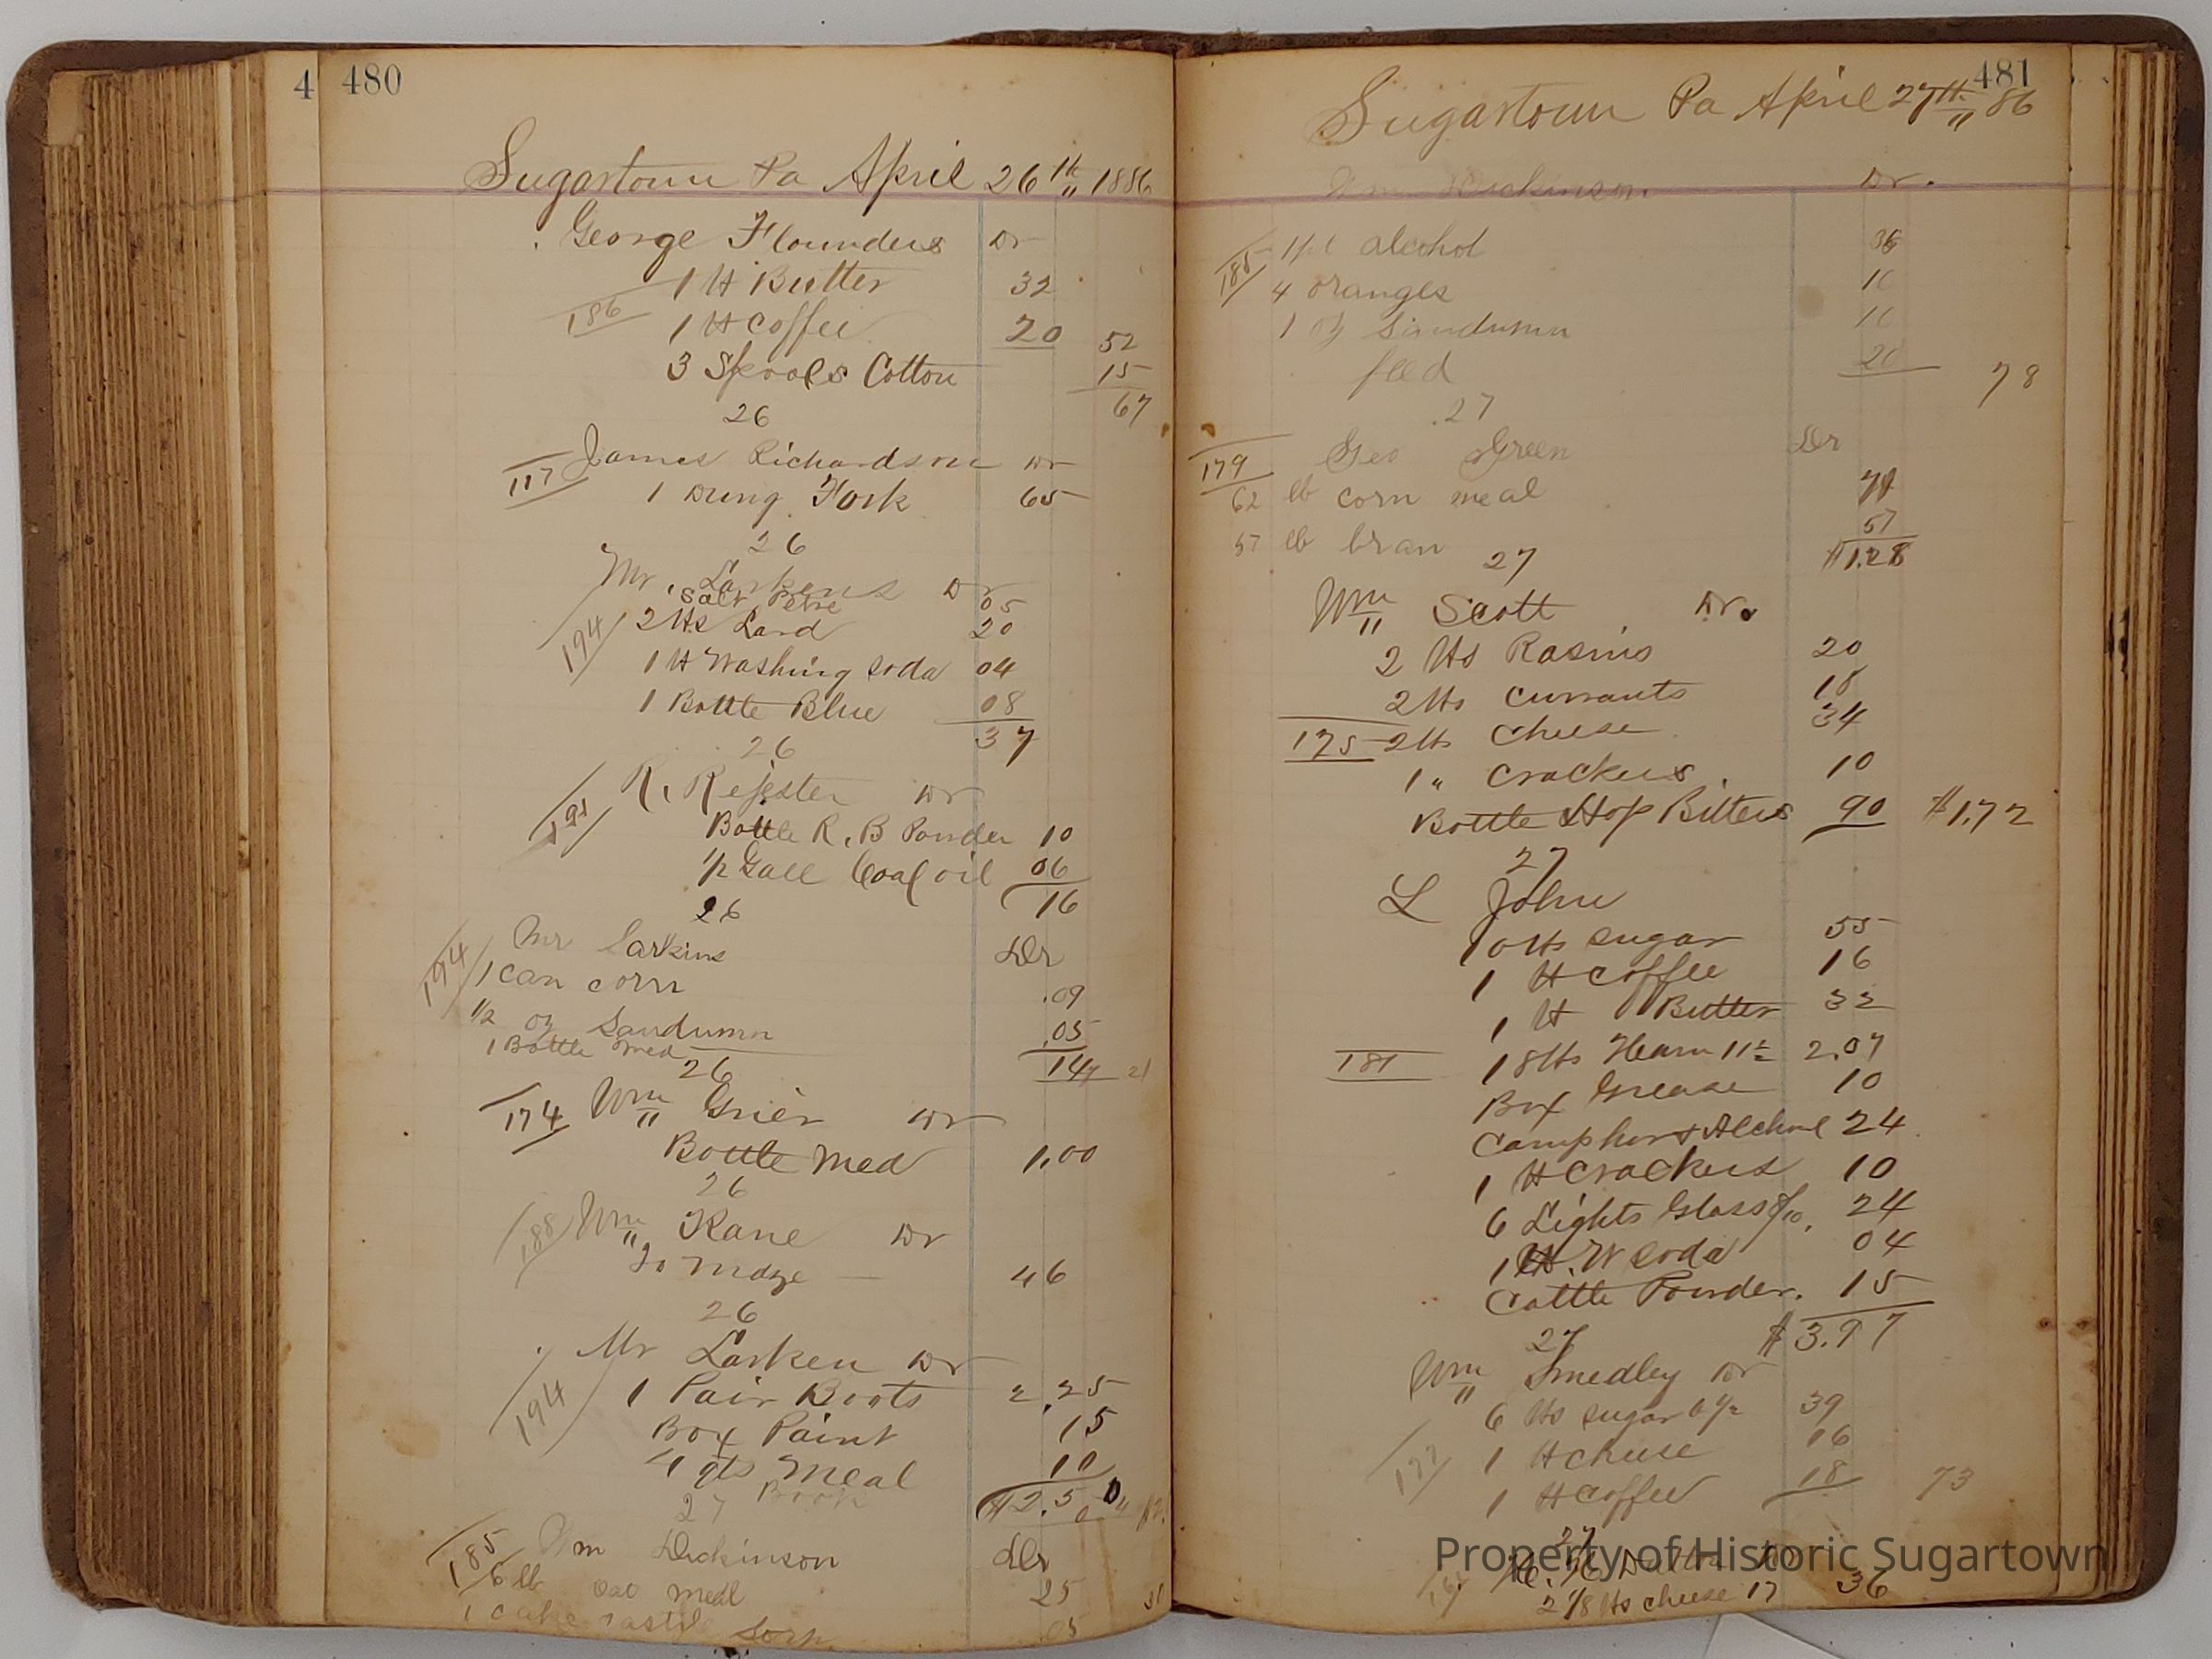 4 480
Sugartown Pa April 26th 1886
George Flounders Dr
1 lb Butter 32
186
1 lb Coffee 20 52
3 Spools Cotton 15
67
26
117 James Richardson Dr
1 Dung Fork 65
26
Mr. Larkens Dr
Salt Petre 05
194 2 lbs Lard 20
1 lb Washing Soda 04
1 Bottle Blue 08
37
26
191 R. Regester Dr
Bottle R. B Powder 10
1/2 Gall Coal oil 06
16
26
194 Mr Larkins Dr
1 can corn .09
1/2 oz Laudumn .05
1 Bottle Med
14
26
174 Wm Grier Dr
Bottle Med 1.00
26
188 Wm Kane Dr
To Mdze 46
26
Mr Larken Dr
194 1 Pair Boots 2.25
Box Paint 15
4 qts Meal 10
Book
27 $2.50
185 Wm Dickinson Dr
6 lb oat meal 25
1 cake castil sorp 05
481
Sugartown Pa April 27th 86
Wm Dickinson Dr.
185 1 pt alcohol 38
4 oranges 10
1 oz Laudumn 10
feed 20 78
27
179 Geo Green Dr
62 lb corn meal 71
57 lb bran 57
27 $1.28
Wm Scott Dr.
2 lbs Rasins 20
2 lbs Currants 18
175 2 lbs Cheese 34
1 " Crackers. 10
Bottle Hop Bitters 90 $1.72
27
L John
10 lbs Sugar 55
1 lb Coffee 16
1 lb Butter 32
181 18 lbs Ham 11 1/2 2.07
Box Grease 10
Camphor & Alchol 24
1 lb Crackers 10
6 Lights Glass 8/10. 24
1 lb. W Soda 04
Cattle Powder. 15
27 $3.97
Wm Smedley Dr
6 lbs Sugar 6 1/2 39
177 1 lb Cheese 16
1 lb Coffee 18 73
27
2 1/8 lbs Cheese 17 36
Property of Historic Sugartown